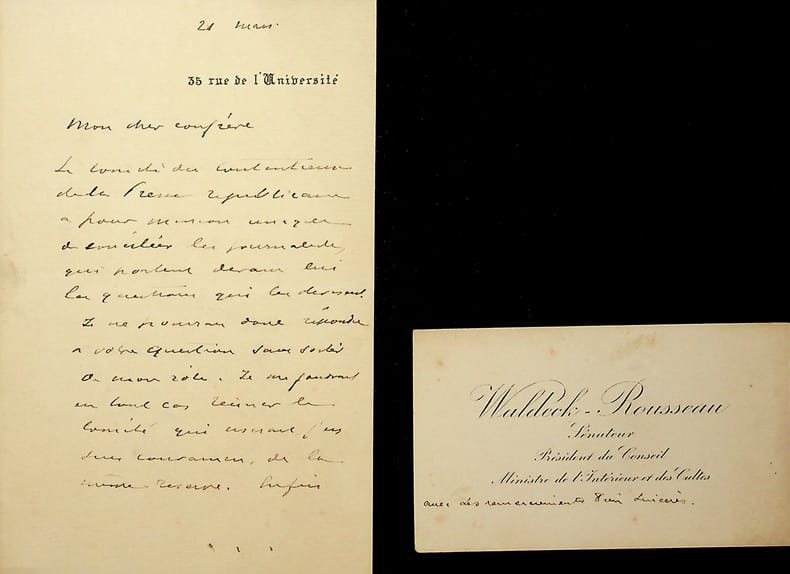 21 mars.
35 rue de l'Université
Mon cher confrère
Le comité du contentieux
de la Presse républicaine
a pour mission unique
de concilier les journalistes
qui portent devant lui
les questions qui les divisent.
Je ne pourrais donc répondre
a votre question sans sortir
de mon rôle. Je me faudrait
en tout cas réunir le
comité qui userait, j'en
suis convaincu, de la
même réserve. Enfin
Waldeck-Rousseau
Sénateur
Président du Conseil
Ministre de l'Intérieur et des Cultes
avec des remerciements bien sincères.